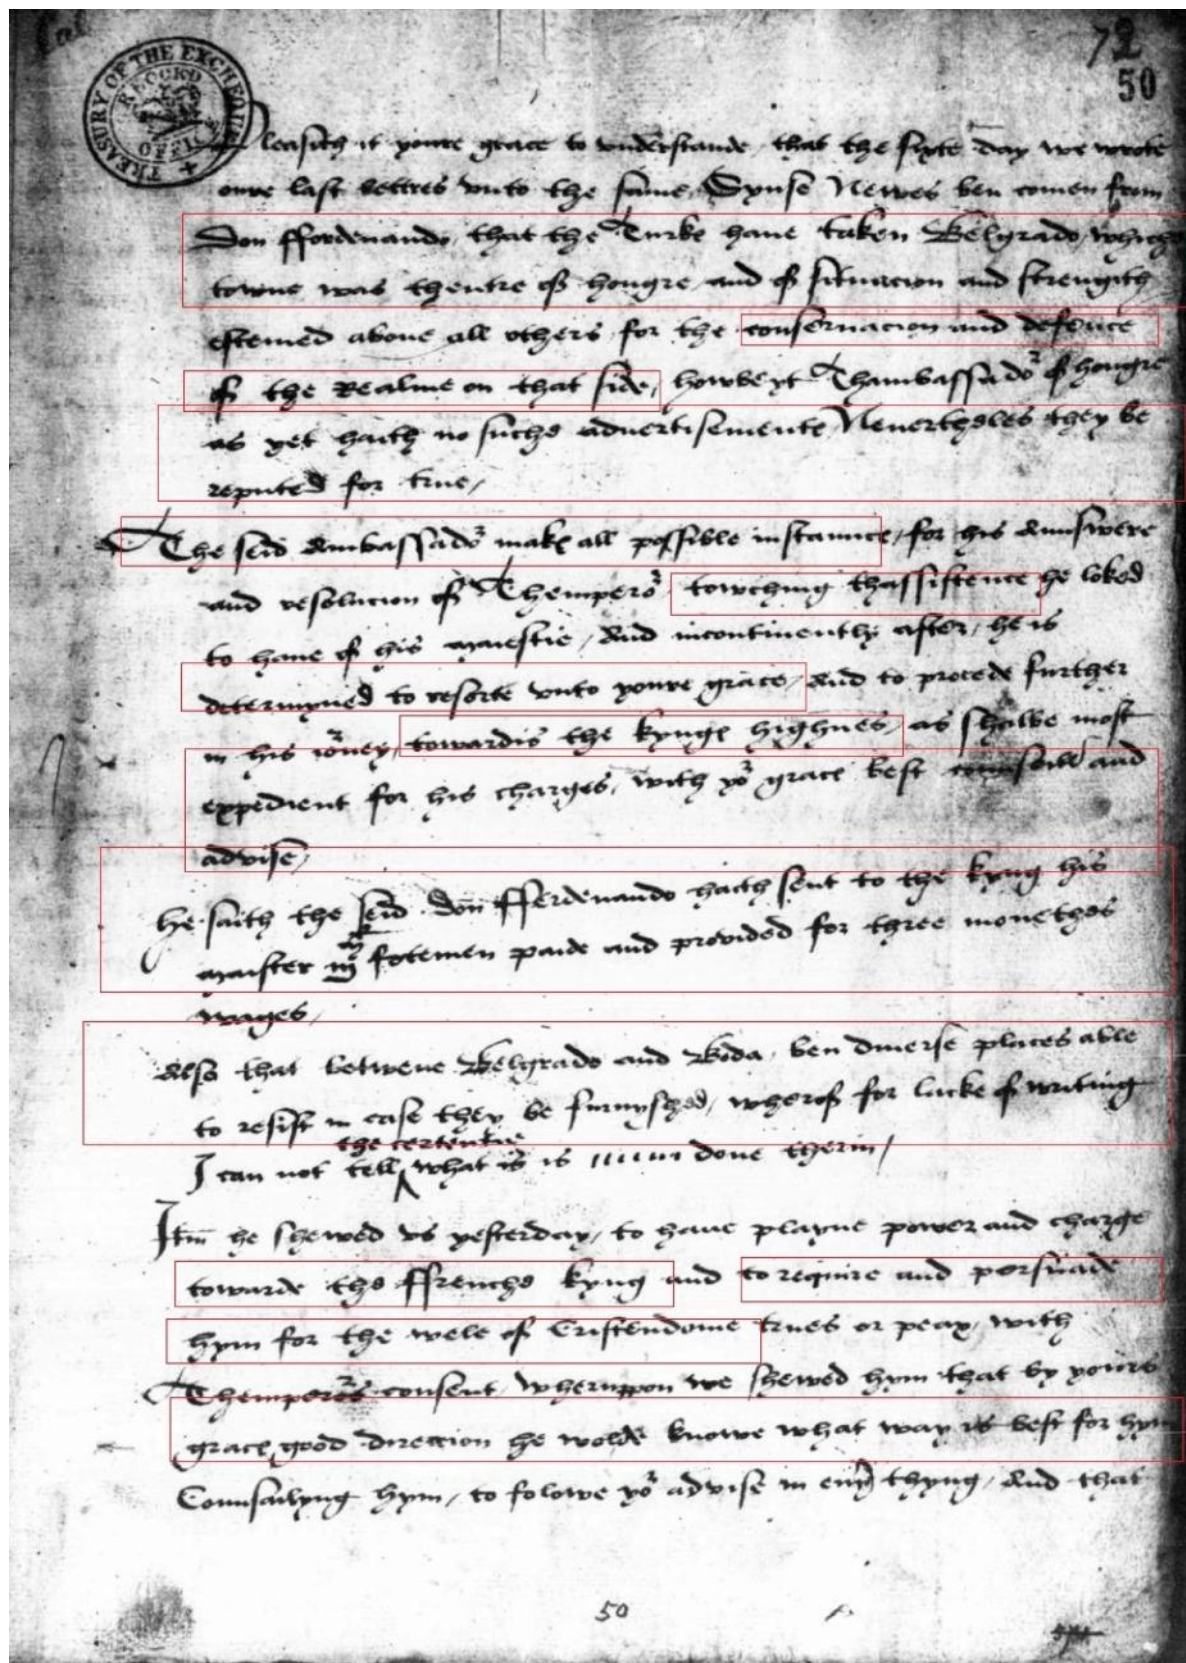 72
50
TREASURY OF THE EXCHEQUER
RECORD
OFFICE
Pleasith it youre grace to understande, that the sixte day we wrote
oure last lettres vnto the same, Synse Newes ben comen from
Don fferdenando, that the Turke haue taken Belgrado, whiche
towne was thentre of hongre and of situacion and strengith
estemed aboue all others for the conseruacion and defence
of the Realme on that side, howbeyt Thambassador of hongre
as yet haith no suche aduertisemente Neuertheles they be
reputed for true,
The seid Ambassador make all possible instaunce, for his Aunswere
and resolucion of Themperor towching thassistence he loked
to haue of his maiestie, And incontinently after, he is
determyned to resorte vnto youre grace, And to procede further
in his iorney, towardis the kynges highnes, as shalbe most
expedient for his charges, with yor grace best counseill and
advise,
He saith the seid Don fferdenando haith sent to the kyng his
maister iijM fotemen paide and provided for three monethes
wages,
Also that betwene Belgrado and Boda, ben diuerse places able
to resist in case they be furnyshed, wherof for lacke of writing
the certentie
I can not tell what is is done therin,
Itm he shewed vs yesterday, to haue playne power and charge
towarde the ffrenche kyng and to require and persuade
hym for the wele of Cristendome trues or peax, with
Themperors consent, wheruppon we shewed hym that by youre
graces good direccion he wolde knowe what way is best for hym
Counsailyng hym, to folowe yor advise in euery thyng, And that
50